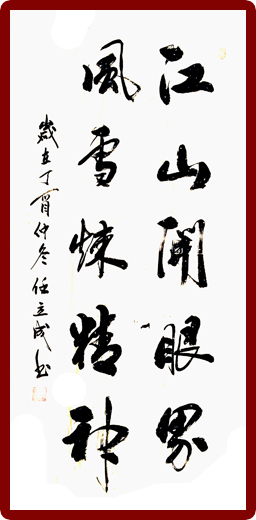 江山開眼界
風雪煉精神
歲在丁酉仲冬任立成书